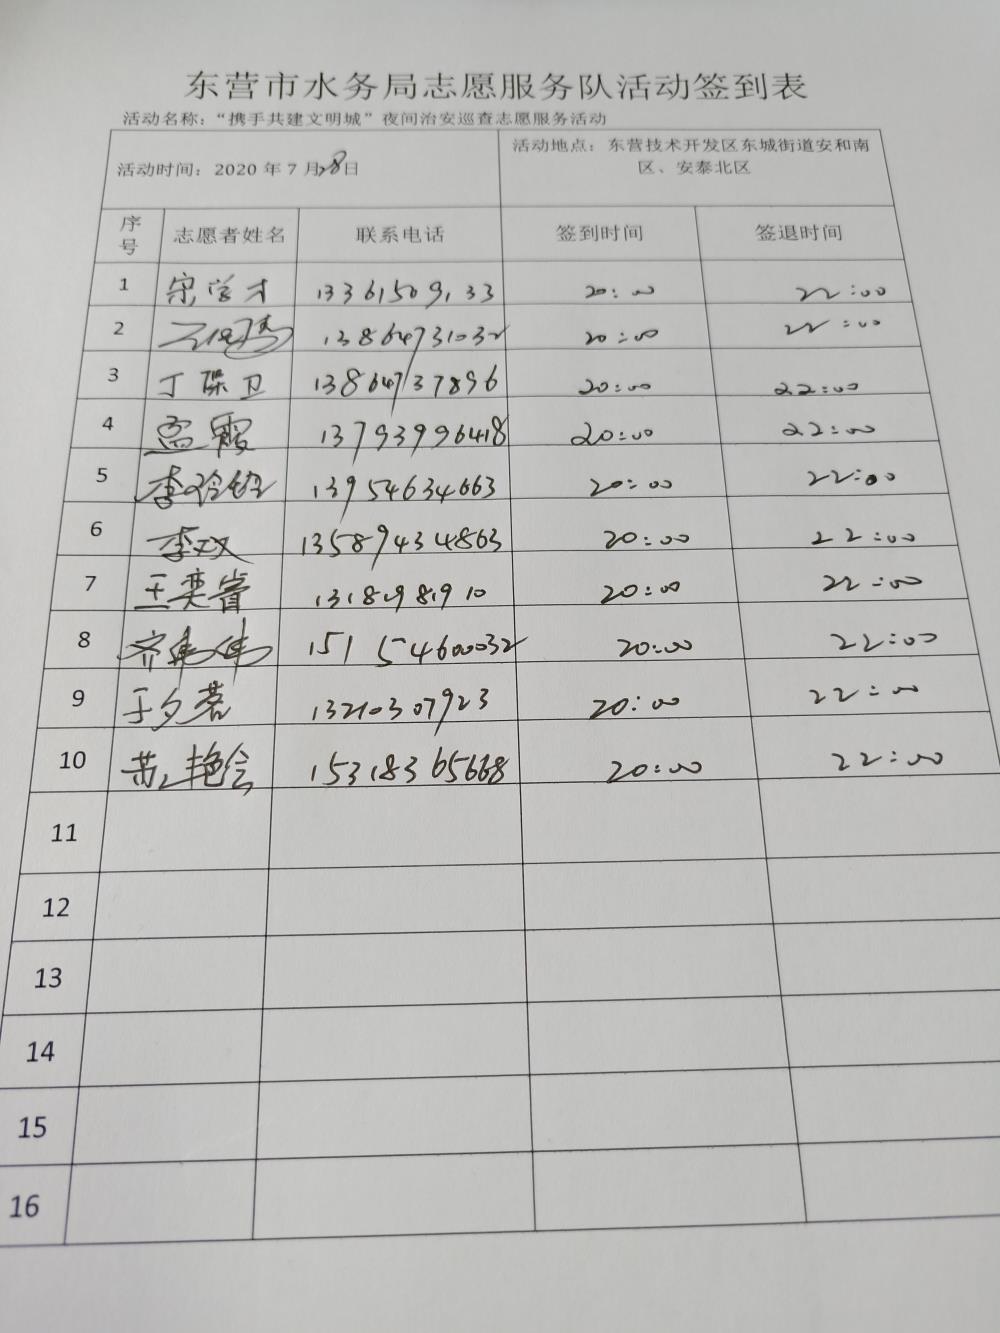 东营市水务局志愿服务队活动签到表
活动名称：“携手共建文明城”夜间治安巡查志愿服务活动
活动时间：2020 年 7 月28日 活动地点：东营技术开发区东城街道安和南区、安泰北区
序号 志愿者姓名 联系电话 签到时间 签退时间
1 宋学才 13361509133 20:00 22:00
2 13864731032 20:00 22:00
3 丁葆卫 13864737896 20:00 22:00
4 孟霞 13793996418 20:00 22:00
5 李玲 13954634663 20:00 22:00
6 李双 13589434863 20:00 22:00
7 王奕睿 13181981910 20:00 22:00
8 齐伟伟 15154600032 20:00 22:00
9 于夕若 13210307923 20:00 22:00
10 苗艳会 15318365668 20:00 22:00
11
12
13
14
15
16